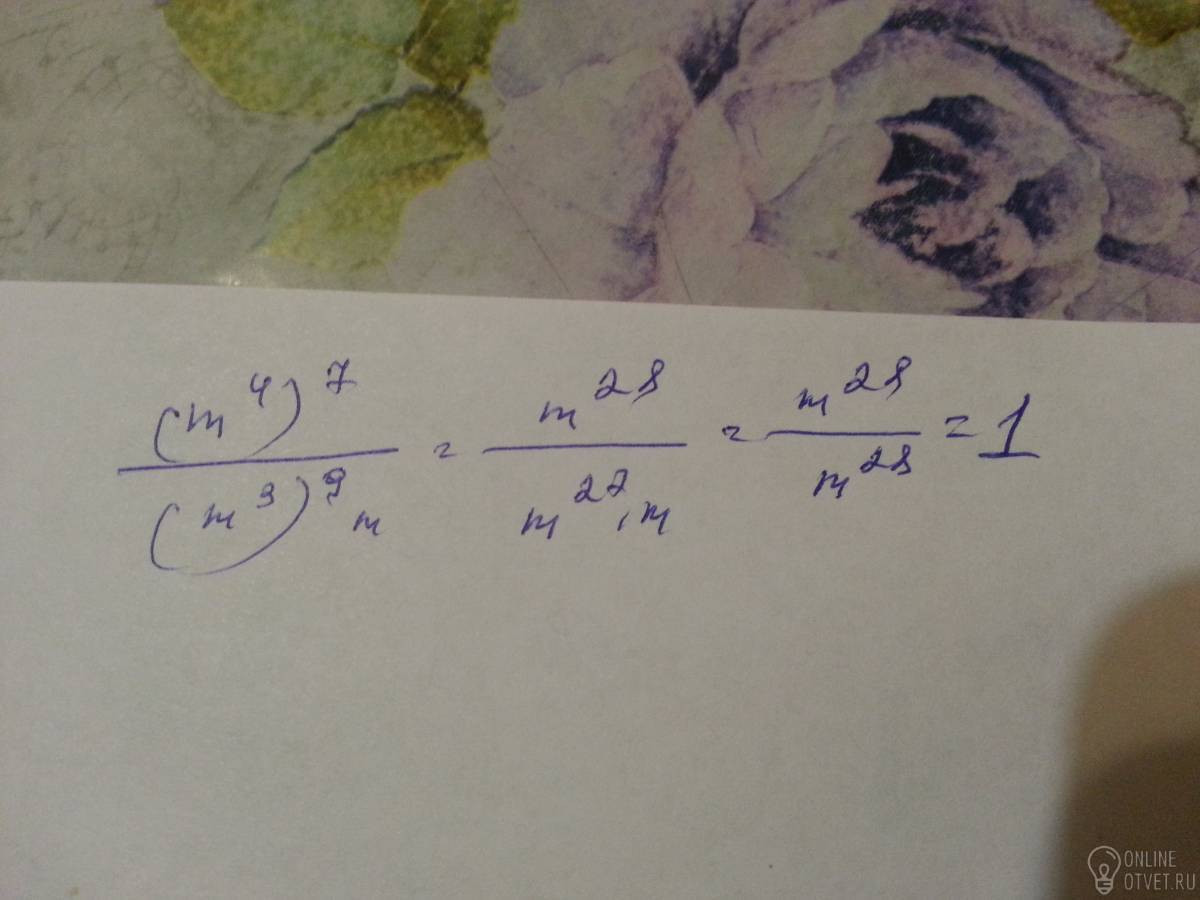 (m^4)^7 / (m^3)^9 m = m^28 / m^27 · m = m^28 / m^28 = 1
ONLINE
OTVET.RU